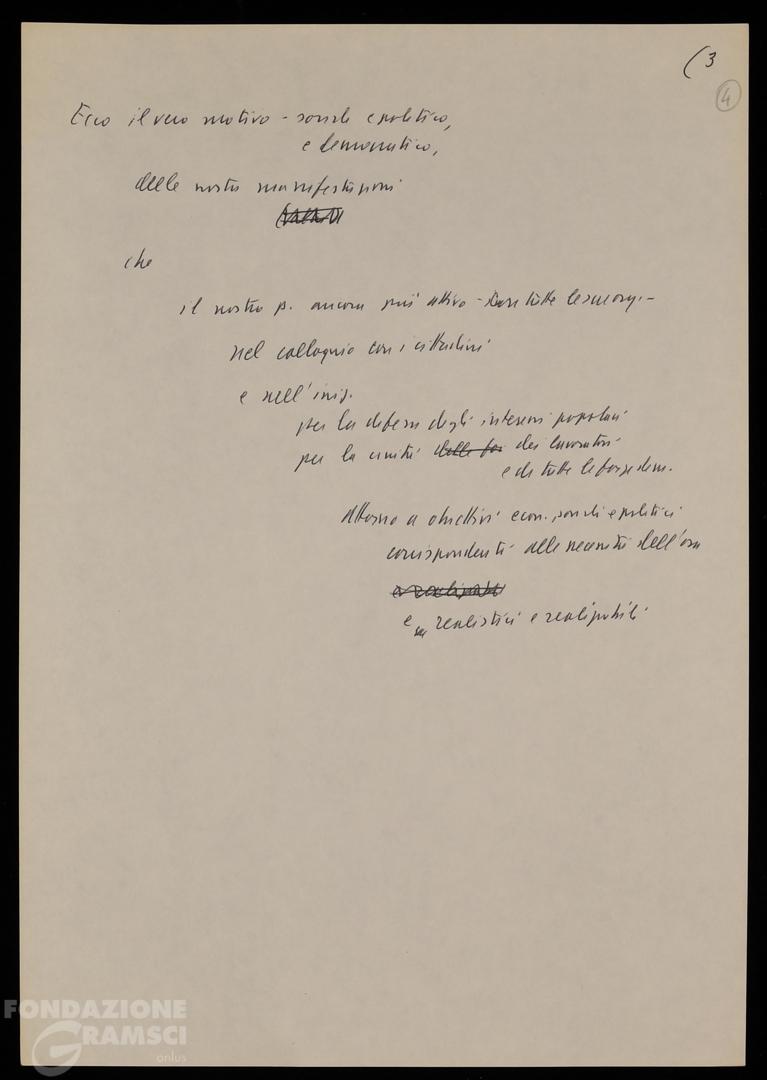 (3
4
Ecco il vero motivo - sociale e politico,
e democratico,
delle nostre manifestazioni
che
il nostro p. ancora più attivo - tutte le sue org. -
nel colloquio con i cittadini
e nell'iniz.
per la difesa degli interessi popolari
per la unità delle for dei lavoratori
e di tutte le forze dem.
attorno a obiettivi econ., sociali e politici
corrispondenti alle necessità dell'ora
e realizzabili
e realistici e realizzabili
FONDAZIONE
GRAMSCI
onlus